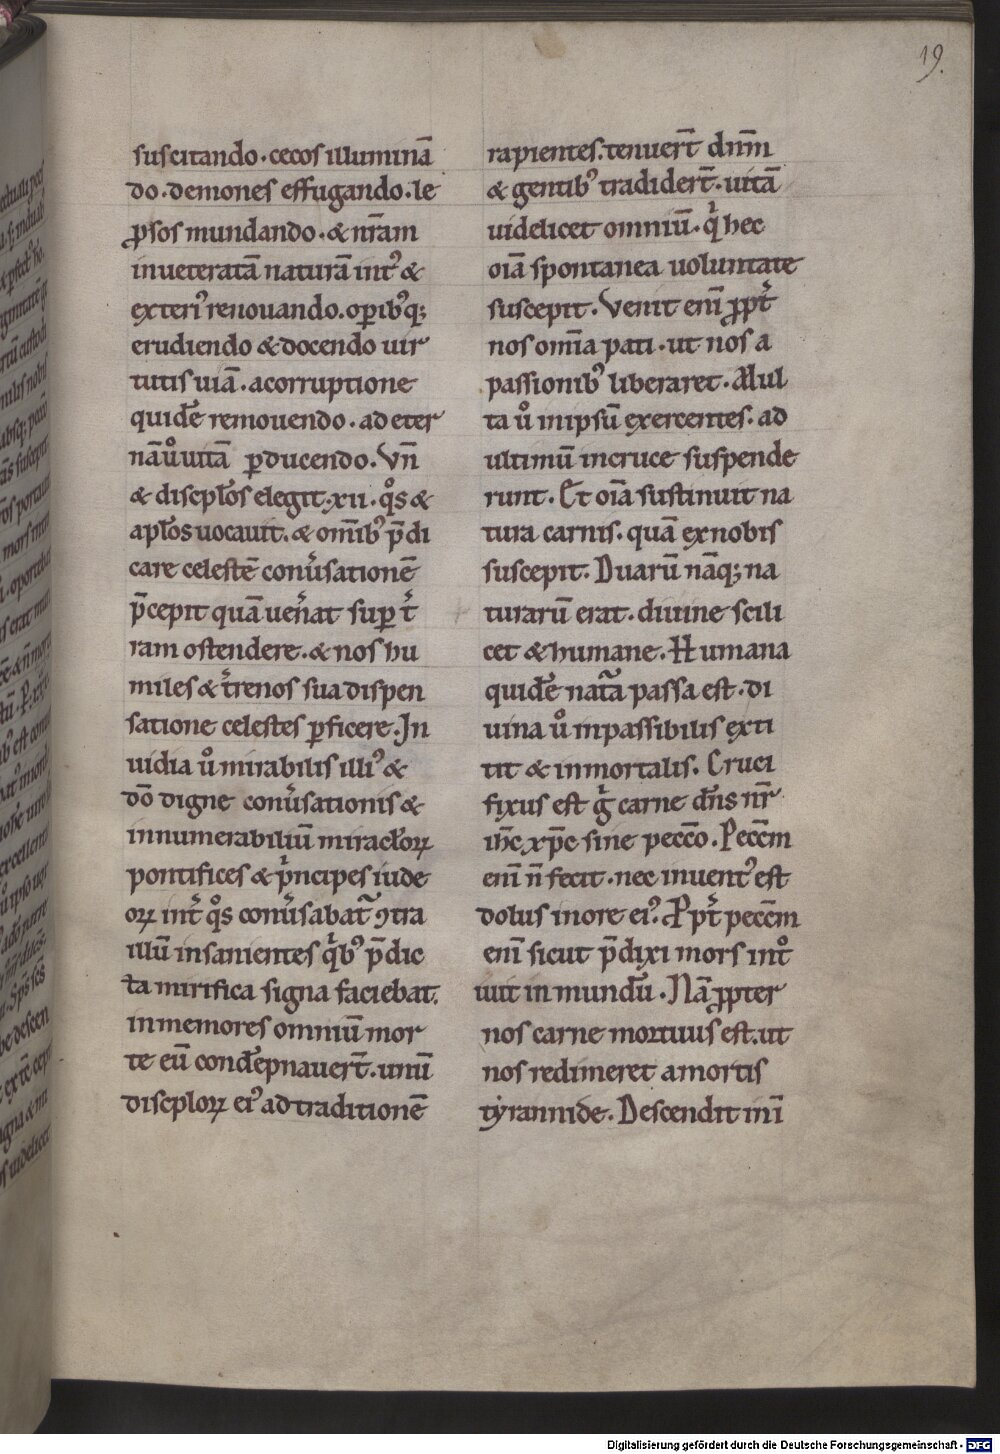 19.
suscitando. cecos illuminā
do. demones effugando. le
ꝓsos mundando. & nr̄am
inueteratā naturā int᷒ &
exteri᷒ renouando. oꝑib᷒q;
erudiendo & docendo uir
tutis uiā. a corruptione
quidē remouendo. ad eter
nā uͦ uitā ꝑducendo. Vn̄
& discpl̄os elegit. xii. qͦs &
apl̄os uocauit. & om̄ib᷒ p̄di
care celestē conu͛sationē
p̄cepit quā uen͛at suꝑ t͛
ram ostendere. & nos hu
miles & t͛renos sua dispen
satione celestes ꝑficere. In
uidia uͦ mirabilis illi᷒ &
dō digne conu͛sationis &
innumerabiliū miracl̄oꝝ
pontifices & pͥncipes iude
oꝝ int͛ qͦs conu͛sabat᷑ ꝯtra
illū insanientes qͥb᷒ p̄dic
ta mirifica signa faciebat.
inmemores omniū mor
te eū condēpnauer̄t. unū
discploꝝ ei᷒ ad traditionē
rapientes. tenuer̄t dn̄m
& gentib᷒ tradider̄t. uitā
uidelicet omniū. qͥ hec
oīa spontanea uoluntate
suscepit. Venit enī ꝓpt͛
nos om̄ia pati. ut nos a
passionib᷒ liberaret. Mul
ta uͦ in ipsū exercentes. ad
ultimū in cruce suspende
runt. Et oīa sustinuit na
tura carnis. quā ex nobis
suscepit. Duarū nāq; na
turarū erat. diuine scili
cet & humane. Humana
quidē nat᷑a passa est. di
uina uͦ inpassibilis exti
tit & inmortalis. Cruci
fixus est gͥ carne dn̄s nr̄
ih̄c xp̄c sine pecc̄o. Pecc̄m
enī n̄ fecit. nec inuent᷒ est
dolus in ore ei᷒. Ꝓpt͛ pecc̄m
enī sicut p̄dixi mors intͦ
iuit in mundū. Nā ꝓpter
nos carne mortuus est. ut
nos redimeret a mortis
tẏrannide. Descendit inī
Digitalisierung gefördert durch die Deutsche Forschungsgemeinschaft - DFG